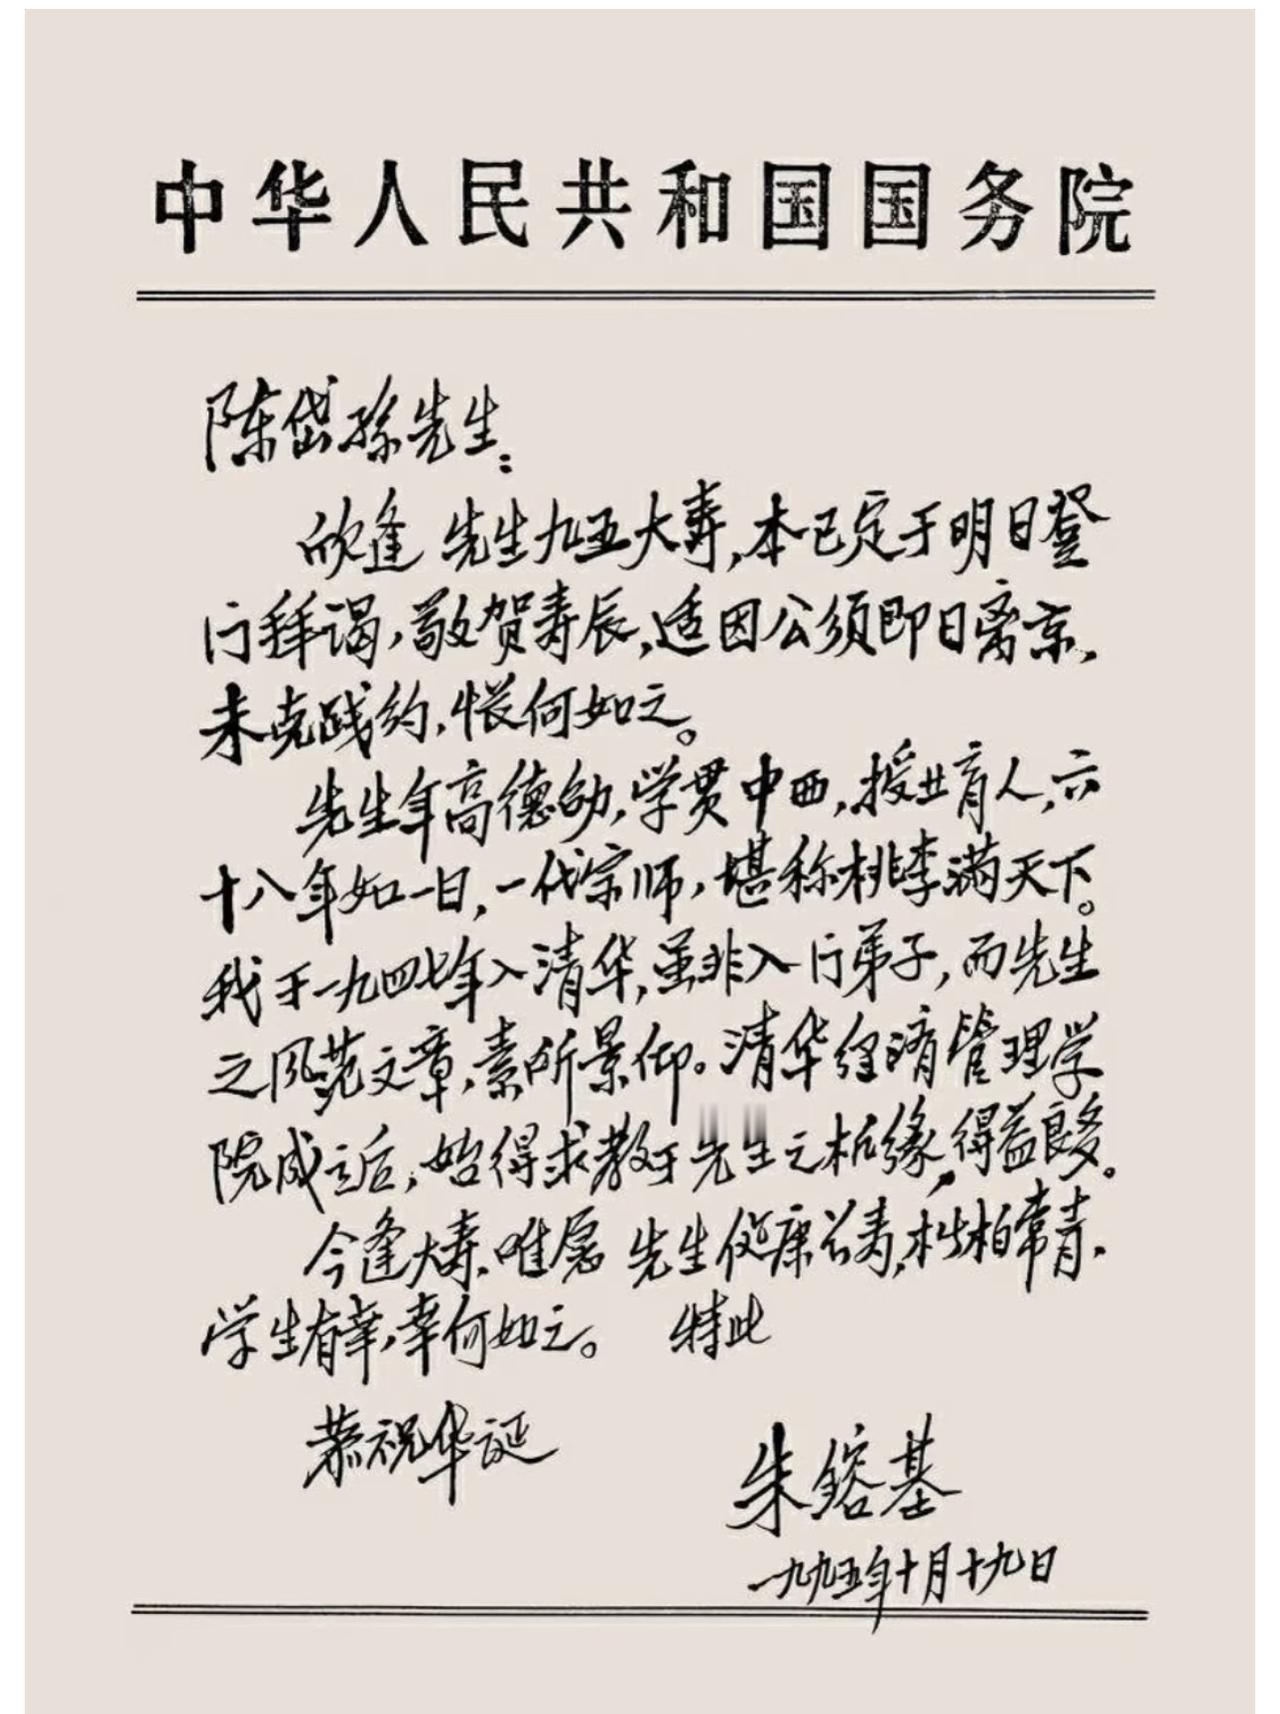 中华人民共和国国务院
陈岱孙先生:
欣逢 先生九五大寿,本已定于明日登
门拜谒,敬贺寿辰,适因公须即日离京,
未克践约,怅何如之。
先生年高德劭,学贯中西,授业育人,六
十八年如一日,一代宗师,堪称桃李满天下。
我于一九四七年入清华,虽非入门弟子,而先生
之风范文章,素所景仰。清华经济管理学
院成立后,始得求教于先生之机缘,得益良多。
今逢大寿,唯愿 先生健康长寿,松柏常青,
学生有幸,幸何如之。 特此
恭祝华诞
朱镕基
一九九五年十月十九日